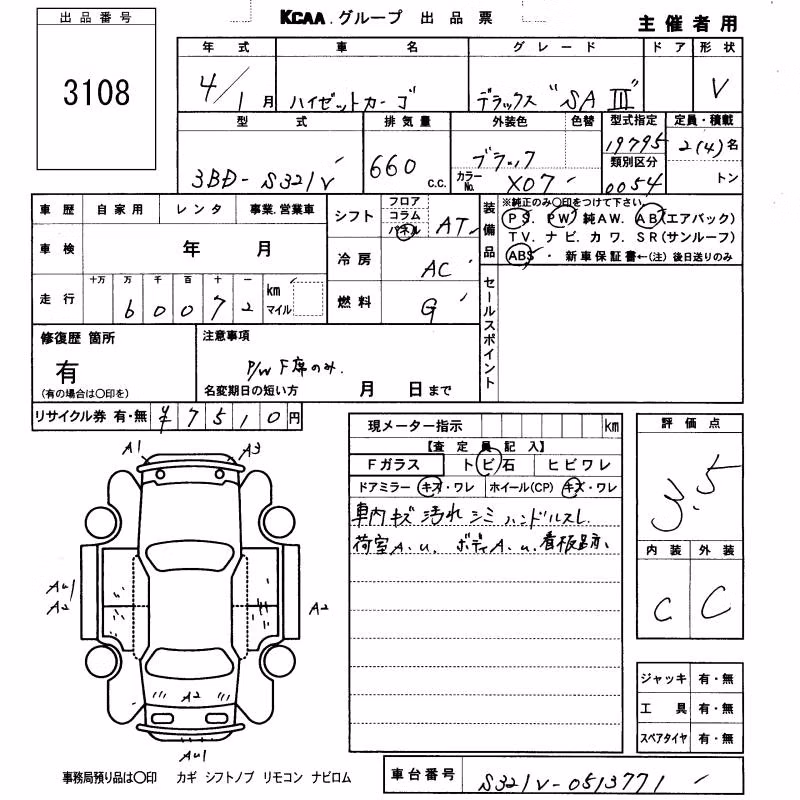 出品番号
3108
KCAA.グループ 出品票
主催者用
年式 車名 グレード ドア 形状
4/1月 ハイゼットカーゴ デラックス "SA III" V
型式 排気量 外装色 色替 型式指定 定員・積載
3BD-S321V 660 c.c. ブラック 19795 2(4)名
カラーNo. X07 類別区分 0054 トン
車歴 自家用 レンタ 事業.営業車
車検 年 月
走行 十万 万 千 百 十 一 km マイル
6 0 0 7 2
シフト フロア コラム パネル AT
冷房 AC
燃料 G
装備品
※純正のみ〇印をつけて下さい。
PS. PW. 純AW. AB(エアバック)
TV. ナビ. カワ. SR(サンルーフ)
ABS・新車保証書←(注)後日送りのみ
セールスポイント
修復歴 箇所
有
(有の場合は〇印を)
注意事項
P/W F席のみ.
名変期日の短い方 月 日まで
リサイクル券 有・無 ¥7510円
現メーター指示 km
【査定員記入】
Fガラス トビ石 ヒビワレ
ドアミラー キズ・ワレ ホイール(CP) キズ・ワレ
車内キズ 汚れ シミ ハンドルスレ
荷室A.U. ボディA.U. 看板跡.
評価点
3.5
内装 外装
C C
A1 A3
AU1
A2
A2
A2
AU1
ジャッキ 有・無
工具 有・無
スペアタイヤ 有・無
事務局預り品は〇印 カギ シフトノブ リモコン ナビロム
車台番号 S321V-0513771